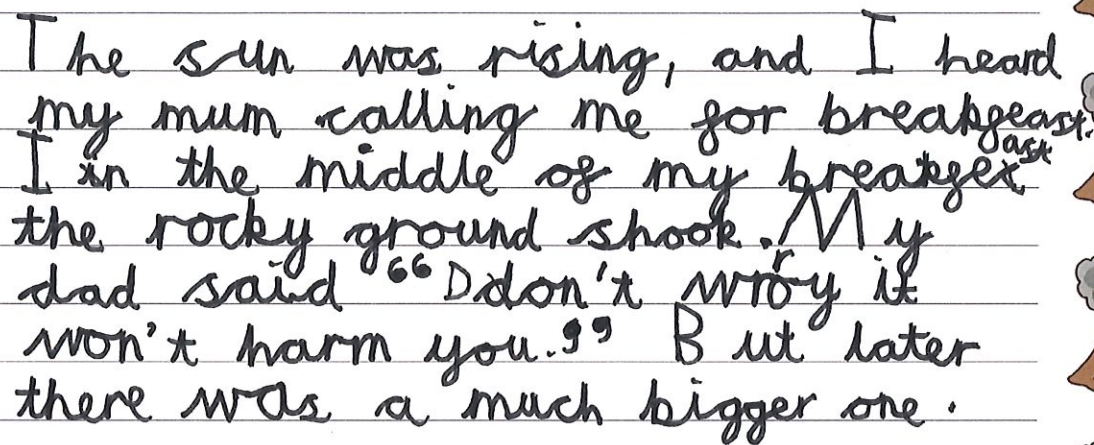 The sun was rising, and I heard
my mum calling me for breakfeast.
I in the middle of my breakfast
the rocky ground shook. My
dad said “Ddon't worry it
won't harm you.” But later
there was a much bigger one.